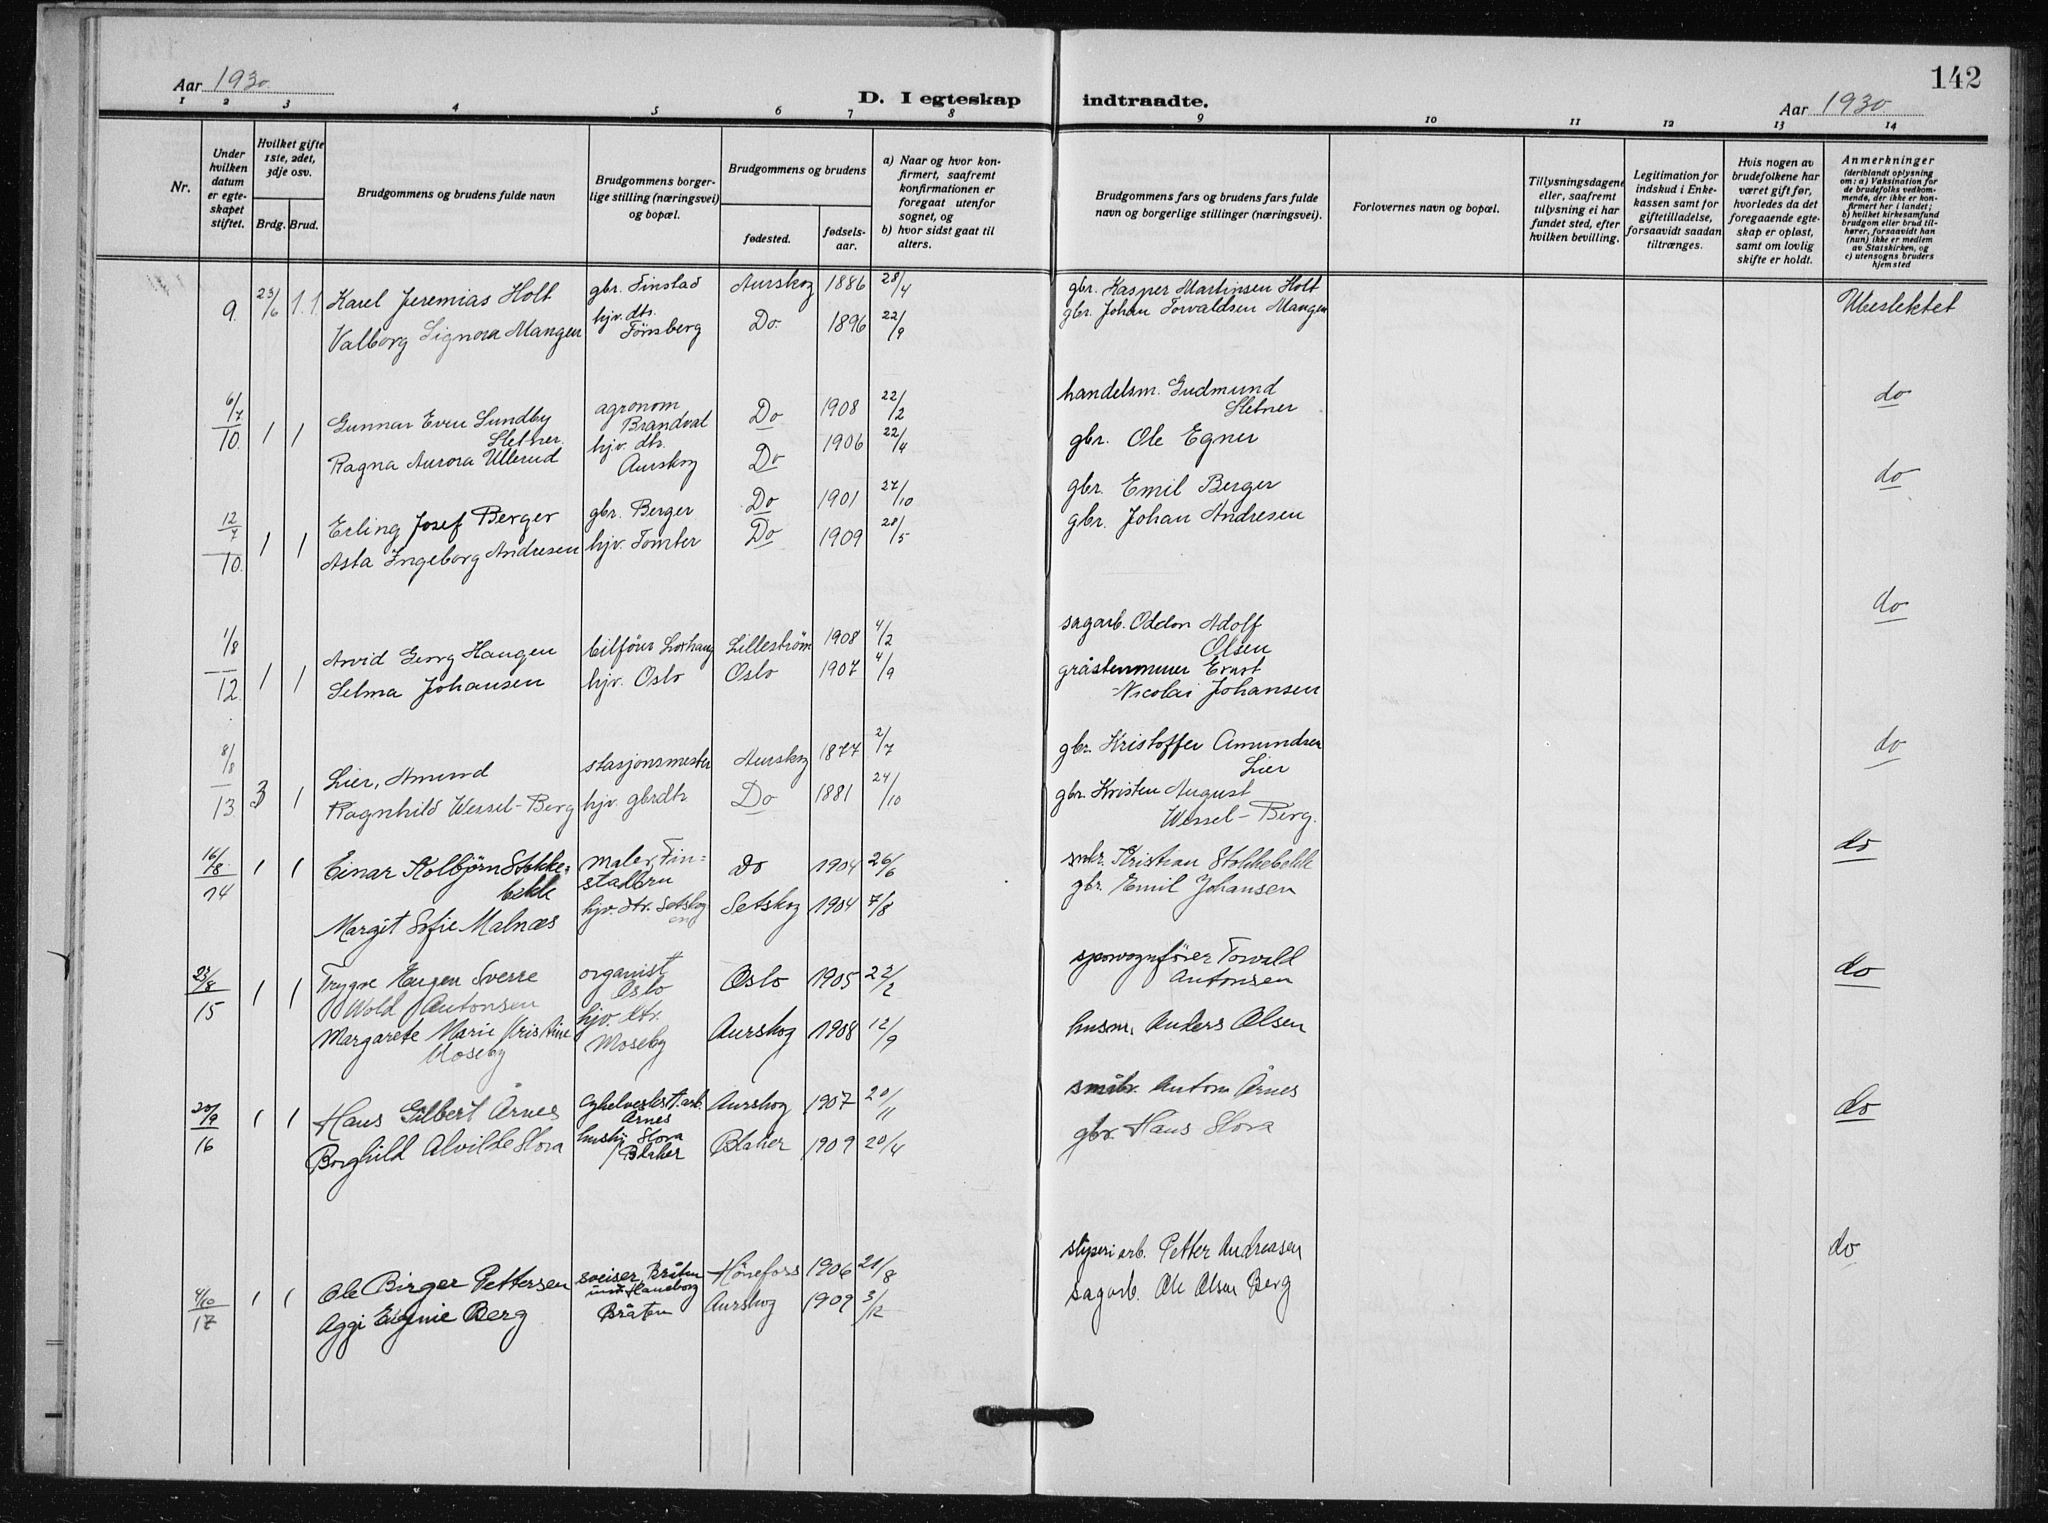 142
Aar 1930.
D. I egteskap indtraadte.
Aar 1930.
1 2 3 4 5 6 7 8 9 10 11 12 13 14
Nr.
Under hvilken datum er egteskapet stiftet.
Hvilket gifte 1ste, 2det, 3dje osv.
Brdg. Brud.
Brudgommens og brudens fulde navn
Brudgommens borgerlige stilling (næringsvei) og bopæl.
Brudgommens og brudens
fødested. fødselsaar.
a) Naar og hvor konfirmert, saafremt konfirmationen er foregaat utenfor sognet, og
b) hvor sidst gaat til alters.
Brudgommens fars og brudens fars fulde navn og borgerlige stillinger (næringsvei).
Forlovernes navn og bopæl.
Tillysningsdagene eller, saafremt tillysning ei har fundet sted, efter hvilken bevilling.
Legitimation for indskud i Enkekassen samt for giftetilladelse, forsaavidt saadan tiltrænges.
Hvis nogen av brudefolkene har været gift før, hvorledes da det foregaaende egteskap er opløst, samt om lovlig skifte er holdt.
Anmerkninger (deriblandt oplysning om: a) Vaksination for de brudefolks vedkommende, der ikke er konfirmert her i landet; b) hvilket kirkesamfund brudgom eller brud tilhører, forsaavidt han (hun) ikke er medlem av Statskirken, og c) utensogns bruders hjemsted
9. 23/6 1. 1. Karel Jeremias Holt gbr. Finstad Aurskog 1886 28/4 gbr. Kasper Martinsen Holt Ubeslektet
Valborg Signora Mangen hjv. dtr. Tønsberg Do. 1896 22/9 gbr. Johan Torvaldsen Mangen
6/7 10. 1 1 Gunnar Even Sundby Sletner agronom Brandval Do 1908 22/2 handelsm. Gudmund Sletner do
Ragna Aurora Ullerud hjv. dtr. Aurskog Do 1906 22/4 gbr. Ole Egner
12/7 10. 1 1 Erling Josef Berger gbr. Berger Do 1901 27/10 gbr. Emil Berger do
Asta Ingeborg Andresen hjv. Tomter Do 1909 28/5 gbr. Johan Andresen
1/8 12. 1 1 Arvid Georg Haugen bilförer Lillestrøm 1908 4/2 sagarb. Oddon Adolf Olsen do
Selma Johansen hjv. Oslo Oslo 1907 4/9 Ernst Nicolai Johansen
8/8 13. 3 1 Lier, Amund stasjonsmester Aurskog 1877 2/7 gbr. Kristoffer Amundsen Lier do
Ragnhild Wessel-Berg hjv. gbrdtr Do 1881 24/10 gbr. Kristen August Wessel-Berg.
16/8 14 1 1 Einar Kolbjörn Stokkebekk maler, Finstadbru do 1904 26/6 snkr. Kristian Stokkebekk do
Margit Sofie Malnæs hjv. dtr. Setskogen Setskog 1904 7/8 gbr. Emil Johansen
23/8 15 1 1 Trygve Eugen Sverre Wold Antonsen organist Oslo Oslo 1905 22/2 sporvognfører Torvald Antonsen do
Margarete Marie Kristine Moseby hjv. dtr. Moseby Aurskog 1908 12/9 husm. Anders Olsen
20/9 16 1 1 Hans Gilbert Årnes cykelverkst. arb. Årnes Aurskog 1907 20/11 småbr. Anton Årnes do
Borghild Alvilde Slora hushj. Slora Blaker Blaker 1909 20/4 gbr. Hans Slora
4/10 17 1 1 Ole Birger Pettersen sveiser, Bråten Hönefoss 1906 21/8 styperi arb. Petter Andreasen do
Aggi Eugenie Berg Bråten Aurskog 1909 3/12 sagarb. Ole Olsen Berg